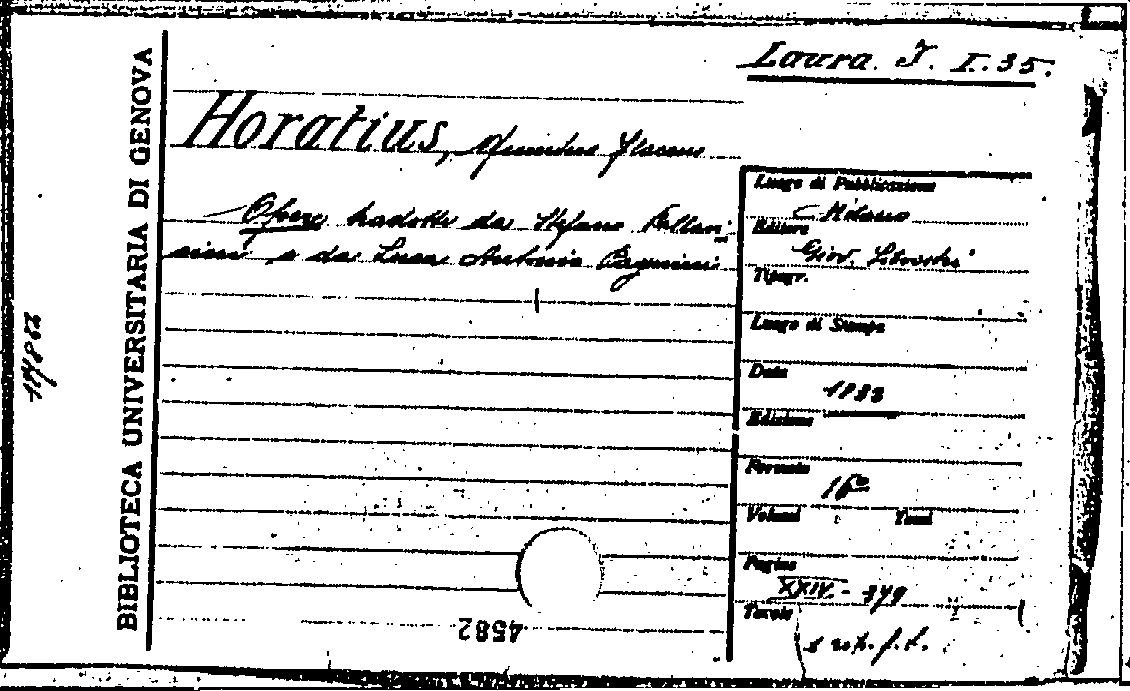 Laura. I. I. 35.
Horatius, Quintus Flaccus
Opere tradotte da Stefano Pallavi
cini e da Luca Antonio Pagnini
BIBLIOTECA UNIVERSITARIA DI GENOVA
Luogo di Pubblicazione
Milano
Editore
Giov. Silvestri
Tipogr.
Luogo di Stampa
Data
Edizione
Formato
16º
Volumi Tomi
Pagine
XXIV. - 379
Tavole
1 rit. f. t.
4582